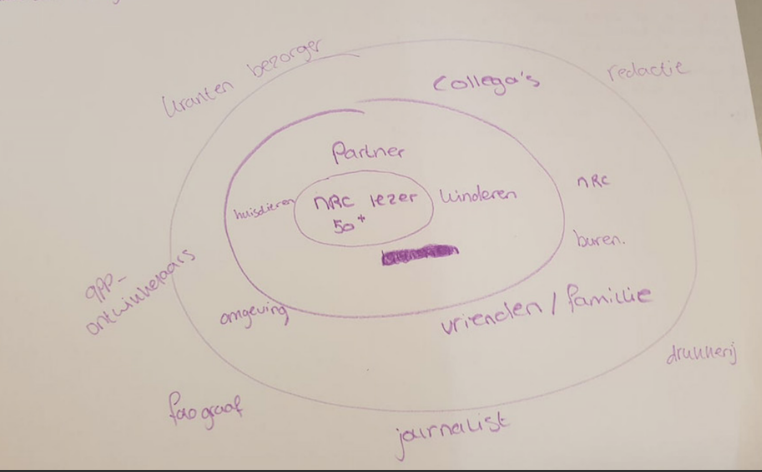 kranten bezorger
Collega's
redactie
Partner
huisdieren
NRC lezer
50+
kinderen
NRC
buren.
app-
ontwikkelaars
omgeving
vrienden / familie
drukkerij
fotograaf
journalist